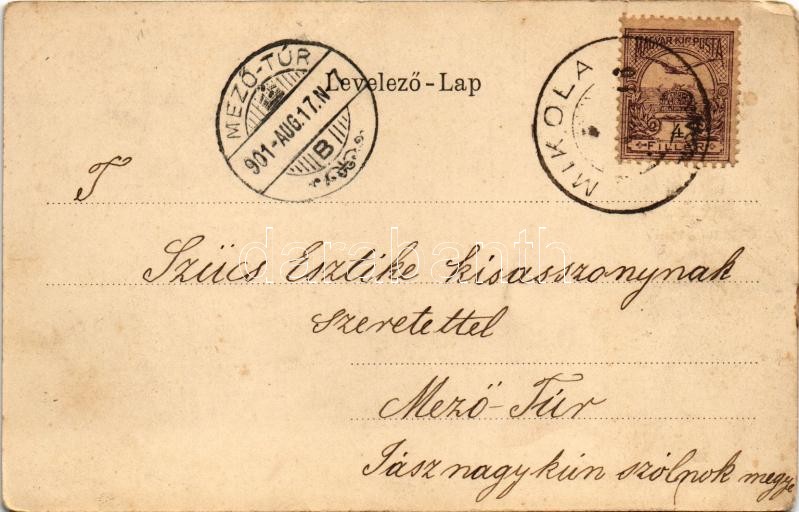 MEZŐ-TÚR
901-AUG.17.N 7
B
Levelező-Lap
MIKOLA
MAGYAR·KIR·POSTA
4
FILLÉR
T
Szücs Esztike kisasszonynak
szeretettel
Mező-Túr
Jász nagykún szólnok megye
darabanth